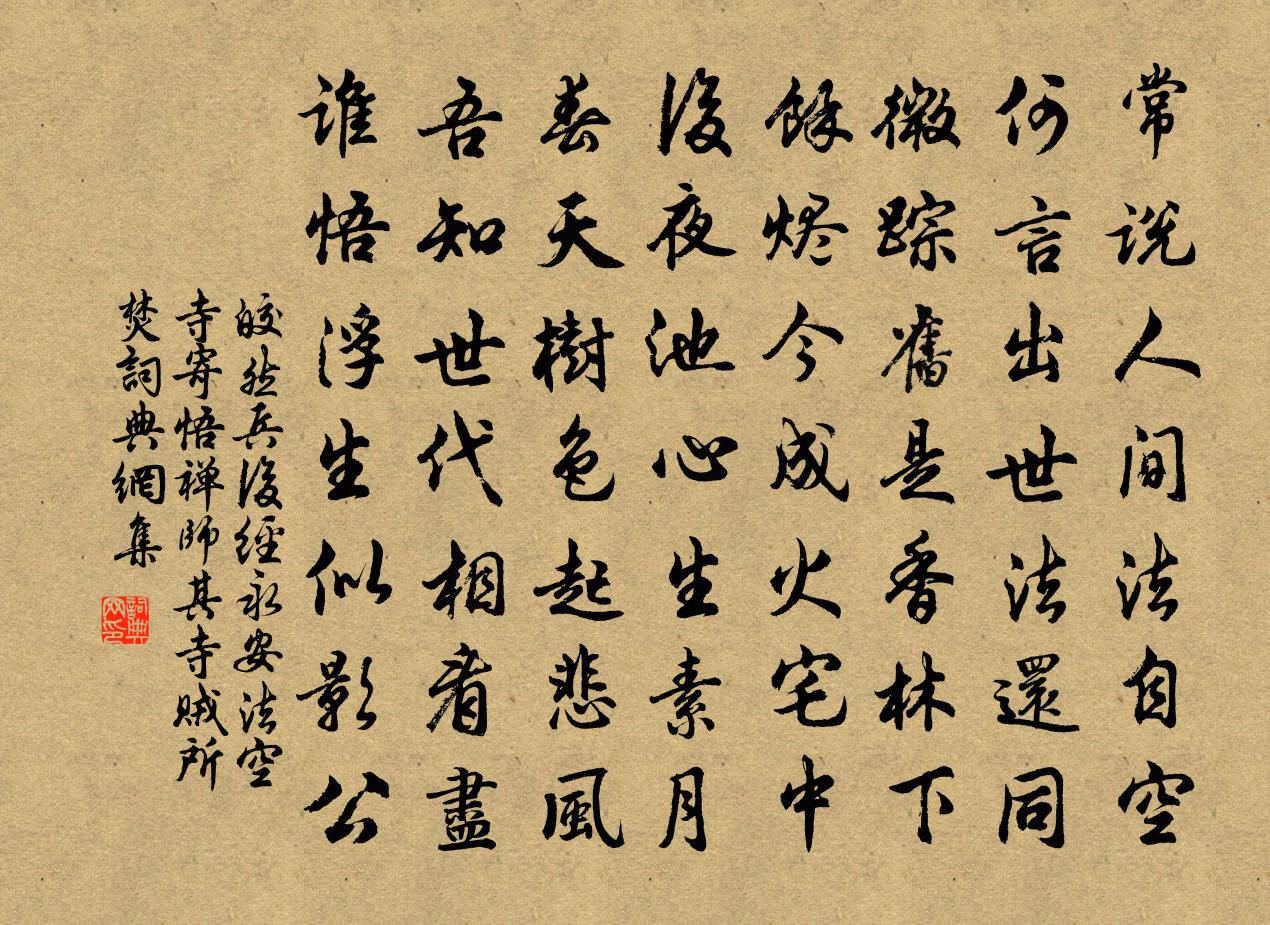 常说人间法自空
何言出世法還同
微踪舊是香林下
餘烬今成火宅中
後夜池心生素月
春天樹色起悲風
吾知世代相看盡
誰悟浮生似影公
皎然兵後經永安法空
寺寄悟禅師其寺贼所
焚詞典網集
詞典
网印